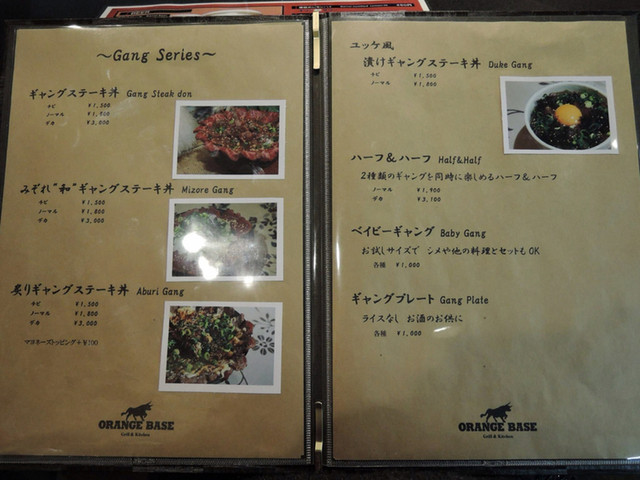 ～Gang Series～
ギャングステーキ丼 Gang Steak don
チビ ¥1,500
ノーマル ¥1,800
デカ ¥3,000
みぞれ"和"ギャングステーキ丼 Mizore Gang
チビ ¥1,500
ノーマル ¥1,800
デカ ¥3,000
炙りギャングステーキ丼 Aburi Gang
チビ ¥1,500
ノーマル ¥1,800
デカ ¥3,000
マヨネーズトッピング+¥100
ORANGE BASE
Grill & Kitchen
ユッケ風
漬けギャングステーキ丼 Duke Gang
チビ ¥1,500
ノーマル ¥1,800
ハーフ&ハーフ Half&Half
2種類のギャングを同時に楽しめるハーフ&ハーフ
ノーマル ¥1,900
デカ ¥3,100
ベイビーギャング Baby Gang
お試しサイズで シメや他の料理とセットもOK
各種 ¥1,000
ギャングプレート Gang Plate
ライスなし お酒のお供に
各種 ¥1,000
ORANGE BASE
Grill & Kitchen